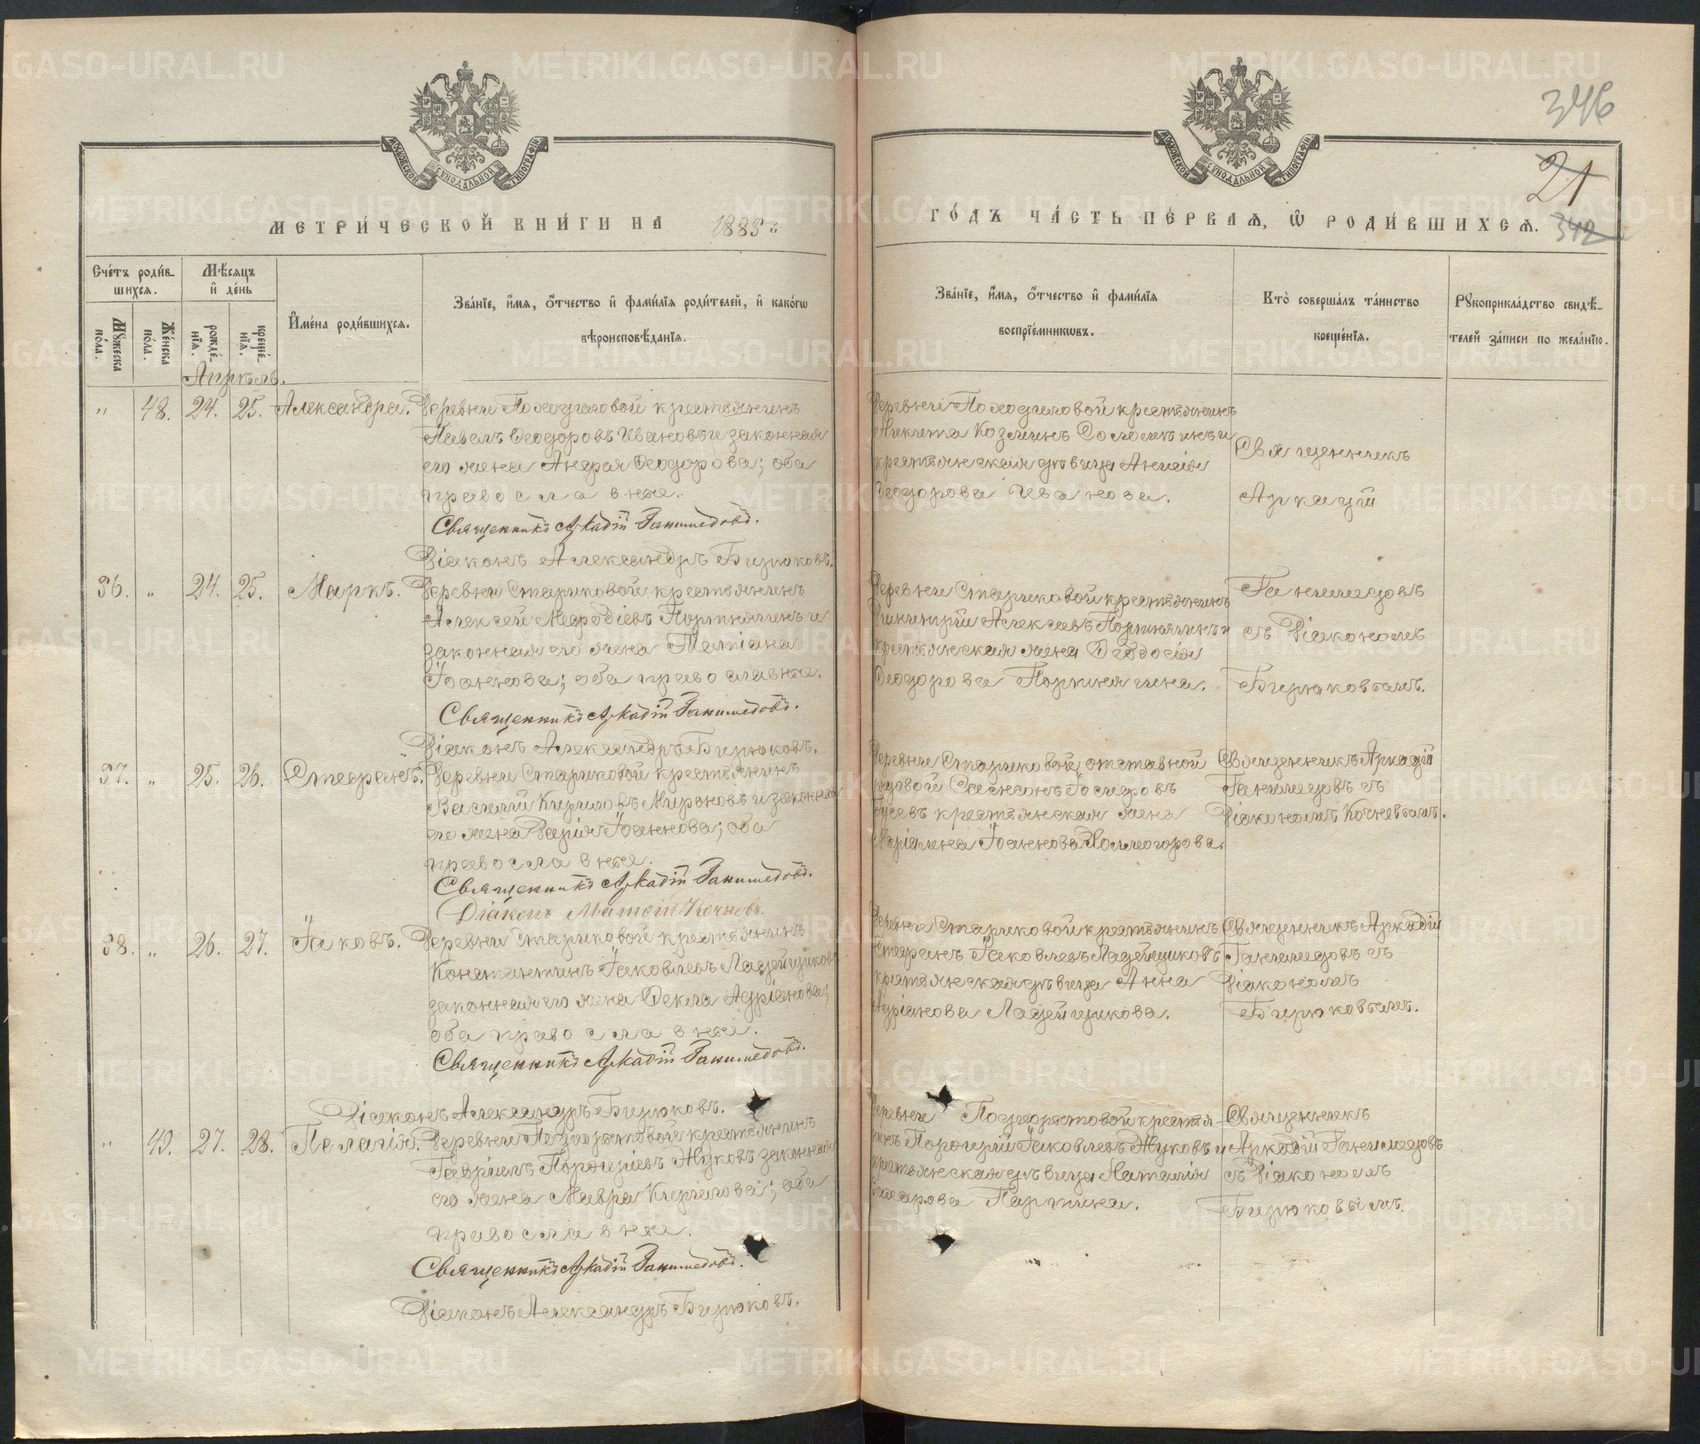 346
21
342
МЕТРИ́ЧЕСКОЙ КНИ́ГИ НА 1885й
ГО́ДЪ ЧА́СТЬ ПЕ́РВАѦ, Ѽ РОДИ́ВШИХСѦ.
Сче́тъ роди́в-
шихсѧ.
Мѣ́сѧцъ
и҆ де́нь
Мꙋ́жеска
по́ла.
Же́нска
по́ла.
рожде́-
нїѧ.
креще́-
нїѧ.
И҆мена̀ роди́вшихсѧ.
Зва́нїе, и҆́мѧ, ѻ҆́тчество и҆ фами́лїѧ роди́телей, и҆ како́гѡ
вѣроисповѣ́данїѧ.
Зва́нїе, и҆́мѧ, ѻ҆́тчество и҆ фами́лїѧ
воспрїе́мникѡвъ.
Кто̀ соверша́лъ та́инство
креще́нїѧ.
Рꙋкоприкла́дство свидѣ́-
телей за́писи по жела́нїю.
Апрѣль.
" 48. 24. 25. Александра. Деревни Походиловой крестьянинъ
Павелъ Ѳеодоровъ Ивановъ и законная
его жена Ѳеодорова; оба
православные.
Священникъ Аркадій Ганимедовъ.
Діаконъ Александръ Бирюковъ.
Деревни Походиловой крестьянинъ
Никита Козминъ и
крестьянская дѣвица
Ѳеодорова Иванова.
Священникъ
Аркадій
36. " 24. 25. Маркъ. Деревни Стариковой крестьянинъ
Алексей Меѳодіевъ Порткягинъ и
законная его жена Татіана
Іоаннова; оба православные.
Священникъ Аркадій Ганимедовъ.
Діаконъ Александръ Бирюковъ.
Деревни Стариковой крестьянинъ
Алексеевъ и
крестьянская жена Ѳеодосія
Ѳеодорова
Ганимедовъ
съ Діакономъ
Бирюковымъ.
37. " 25. 26. Стефанъ. Деревни Стариковой крестьянинъ
Василій Кириловъ Мироновъ и законная
его жена Дарія Іоаннова; оба
православные.
Священникъ Аркадій Ганимедовъ.
Діаконъ Матѳій Кочневъ.
Деревни Стариковой, отставной
рядовой Самсонъ
Гусевъ крестьянская жена
Маріамна Іоаннова Холмогорова.
Священникъ Аркадій
Ганимедовъ съ
Діакономъ Кочневымъ.
38. " 26. 27. Іаковъ. Деревни Стариковой крестьянинъ
Константинъ Іаковлевъ Ладейщиковъ
законная его жена Ѳекла Адріанова;
оба православные.
Священникъ Аркадій Ганимедовъ.
Діаконъ Александръ Бирюковъ.
Деревни Стариковой крестьянинъ
Стефанъ Іаковлевъ Ладейщиковъ
крестьянская дѣвица Анна
Адріанова Ладейщикова.
Священникъ Аркадій
Ганимедовъ съ
Діакономъ
Бирюковымъ.
" 49. 27. 28. Пелагія. Деревни крестьянинъ
Гавріилъ Порфиріевъ Жуковъ законная
его жена Мавра Кирилова; оба
православные.
Священникъ Аркадій Ганимедовъ.
Діаконъ Александръ Бирюковъ.
Деревни крестья-
нинъ Порфирій Іаковлевъ Жуковъ и
крестьянская дѣвица Наталія
Священникъ
Аркадій Ганимедовъ
съ Діакономъ
Бирюковымъ.